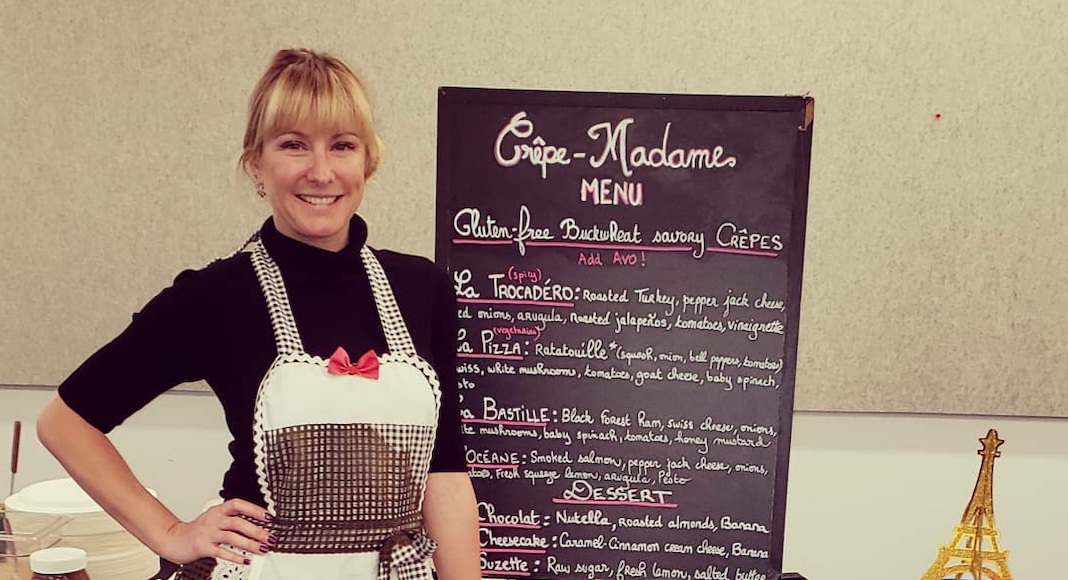 Crêpe-Madame
MENU
Gluten-free Buckwheat savory CRÊPES
Add Avo!
(spicy)
La TROCADÉRO: Roasted Turkey, pepper jack cheese,
ed onions, arugula, roasted jalapeños, tomatoes, vinaigrette
(vegetarian)
La PIZZA: Ratatouille* (squash, onion, bell peppers, tomatoes)
wiss, white mushrooms, tomatoes, goat cheese, baby spinach,
sto
La BASTILLE: Black Forest Ham, swiss cheese, onions,
ite mushrooms, baby spinach, tomatoes, honey mustard
L'OCÉANE: Smoked salmon, pepper jack cheese, onions,
atoes, Fresh squeeze lemon, arugula, Pesto
DESSERT
Chocolat: Nutella, roasted almonds, Banana
Cheesecake: Caramel-Cinnamon cream cheese, Banana
Suzette: Raw sugar, fresh lemon, salted butter